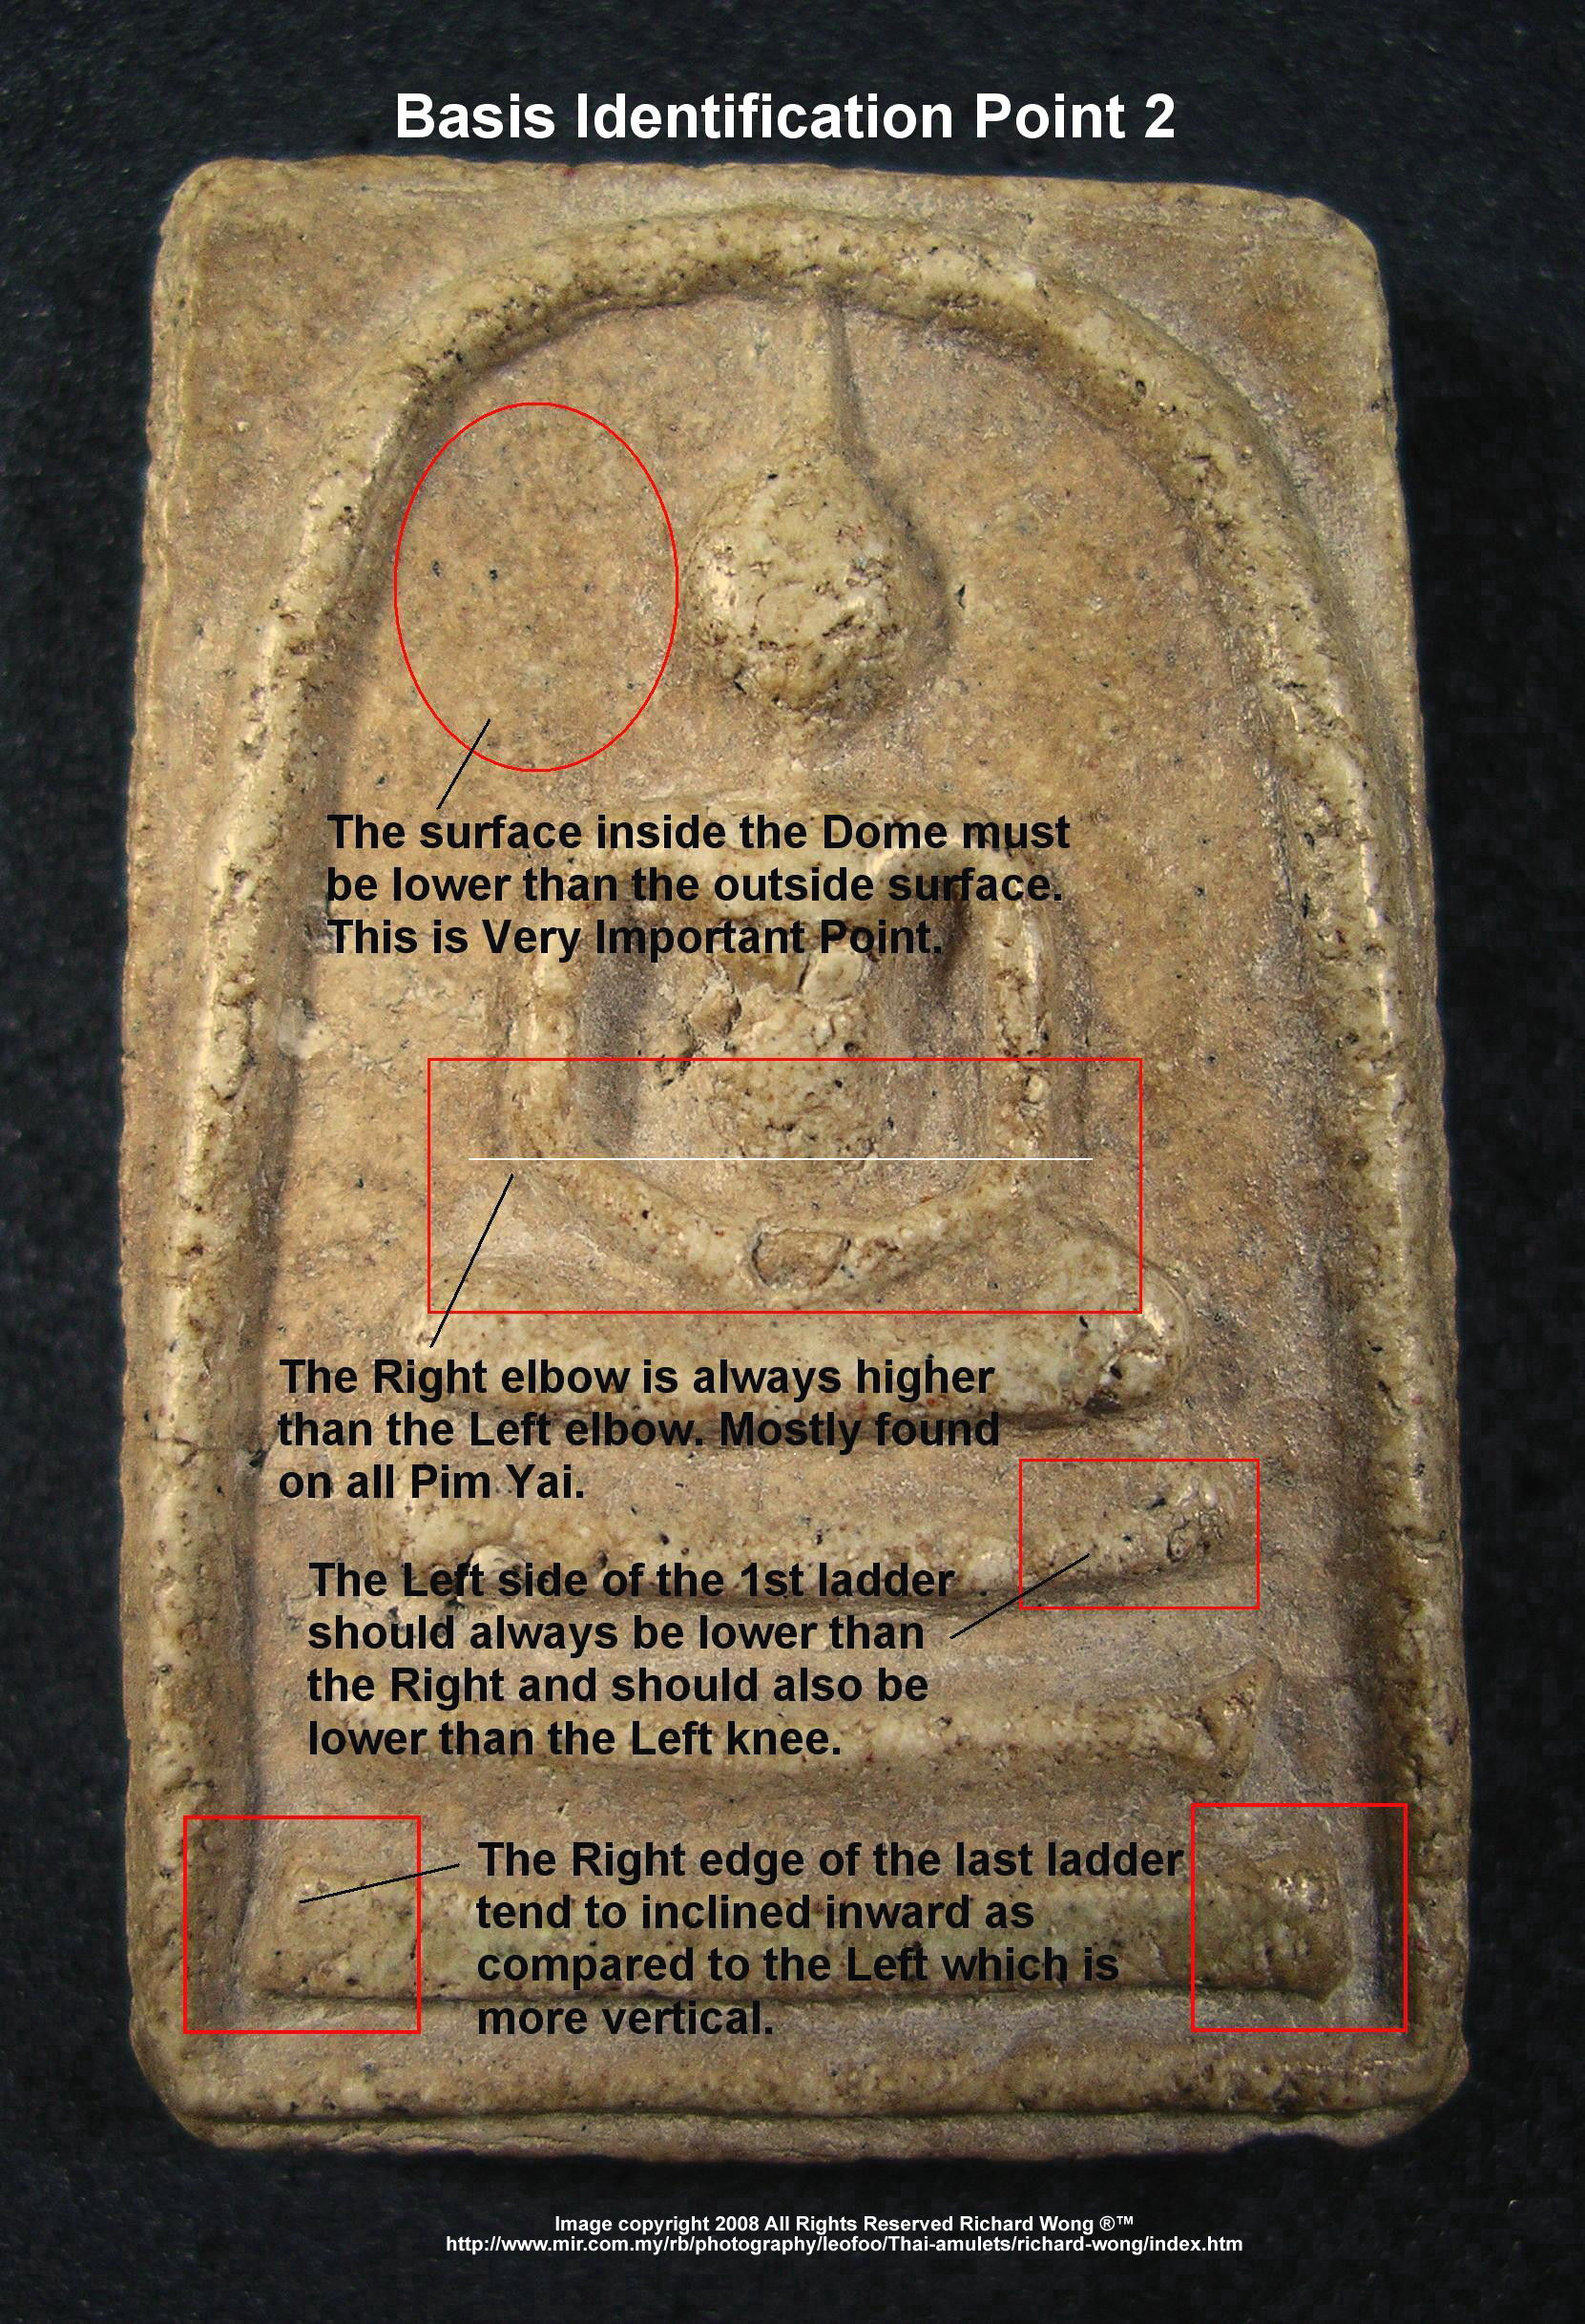 Basis Identification Point 2
The surface inside the Dome must
be lower than the outside surface.
This is Very Important Point.
The Right elbow is always higher
than the Left elbow. Mostly found
on all Pim Yai.
The Left side of the 1st ladder
should always be lower than
the Right and should also be
lower than the Left knee.
The Right edge of the last ladder
tend to inclined inward as
compared to the Left which is
more vertical.
Image copyright 2008 All Rights Reserved Richard Wong ®™
http://www.mir.com.my/rb/photography/leofoo/Thai-amulets/richard-wong/index.htm